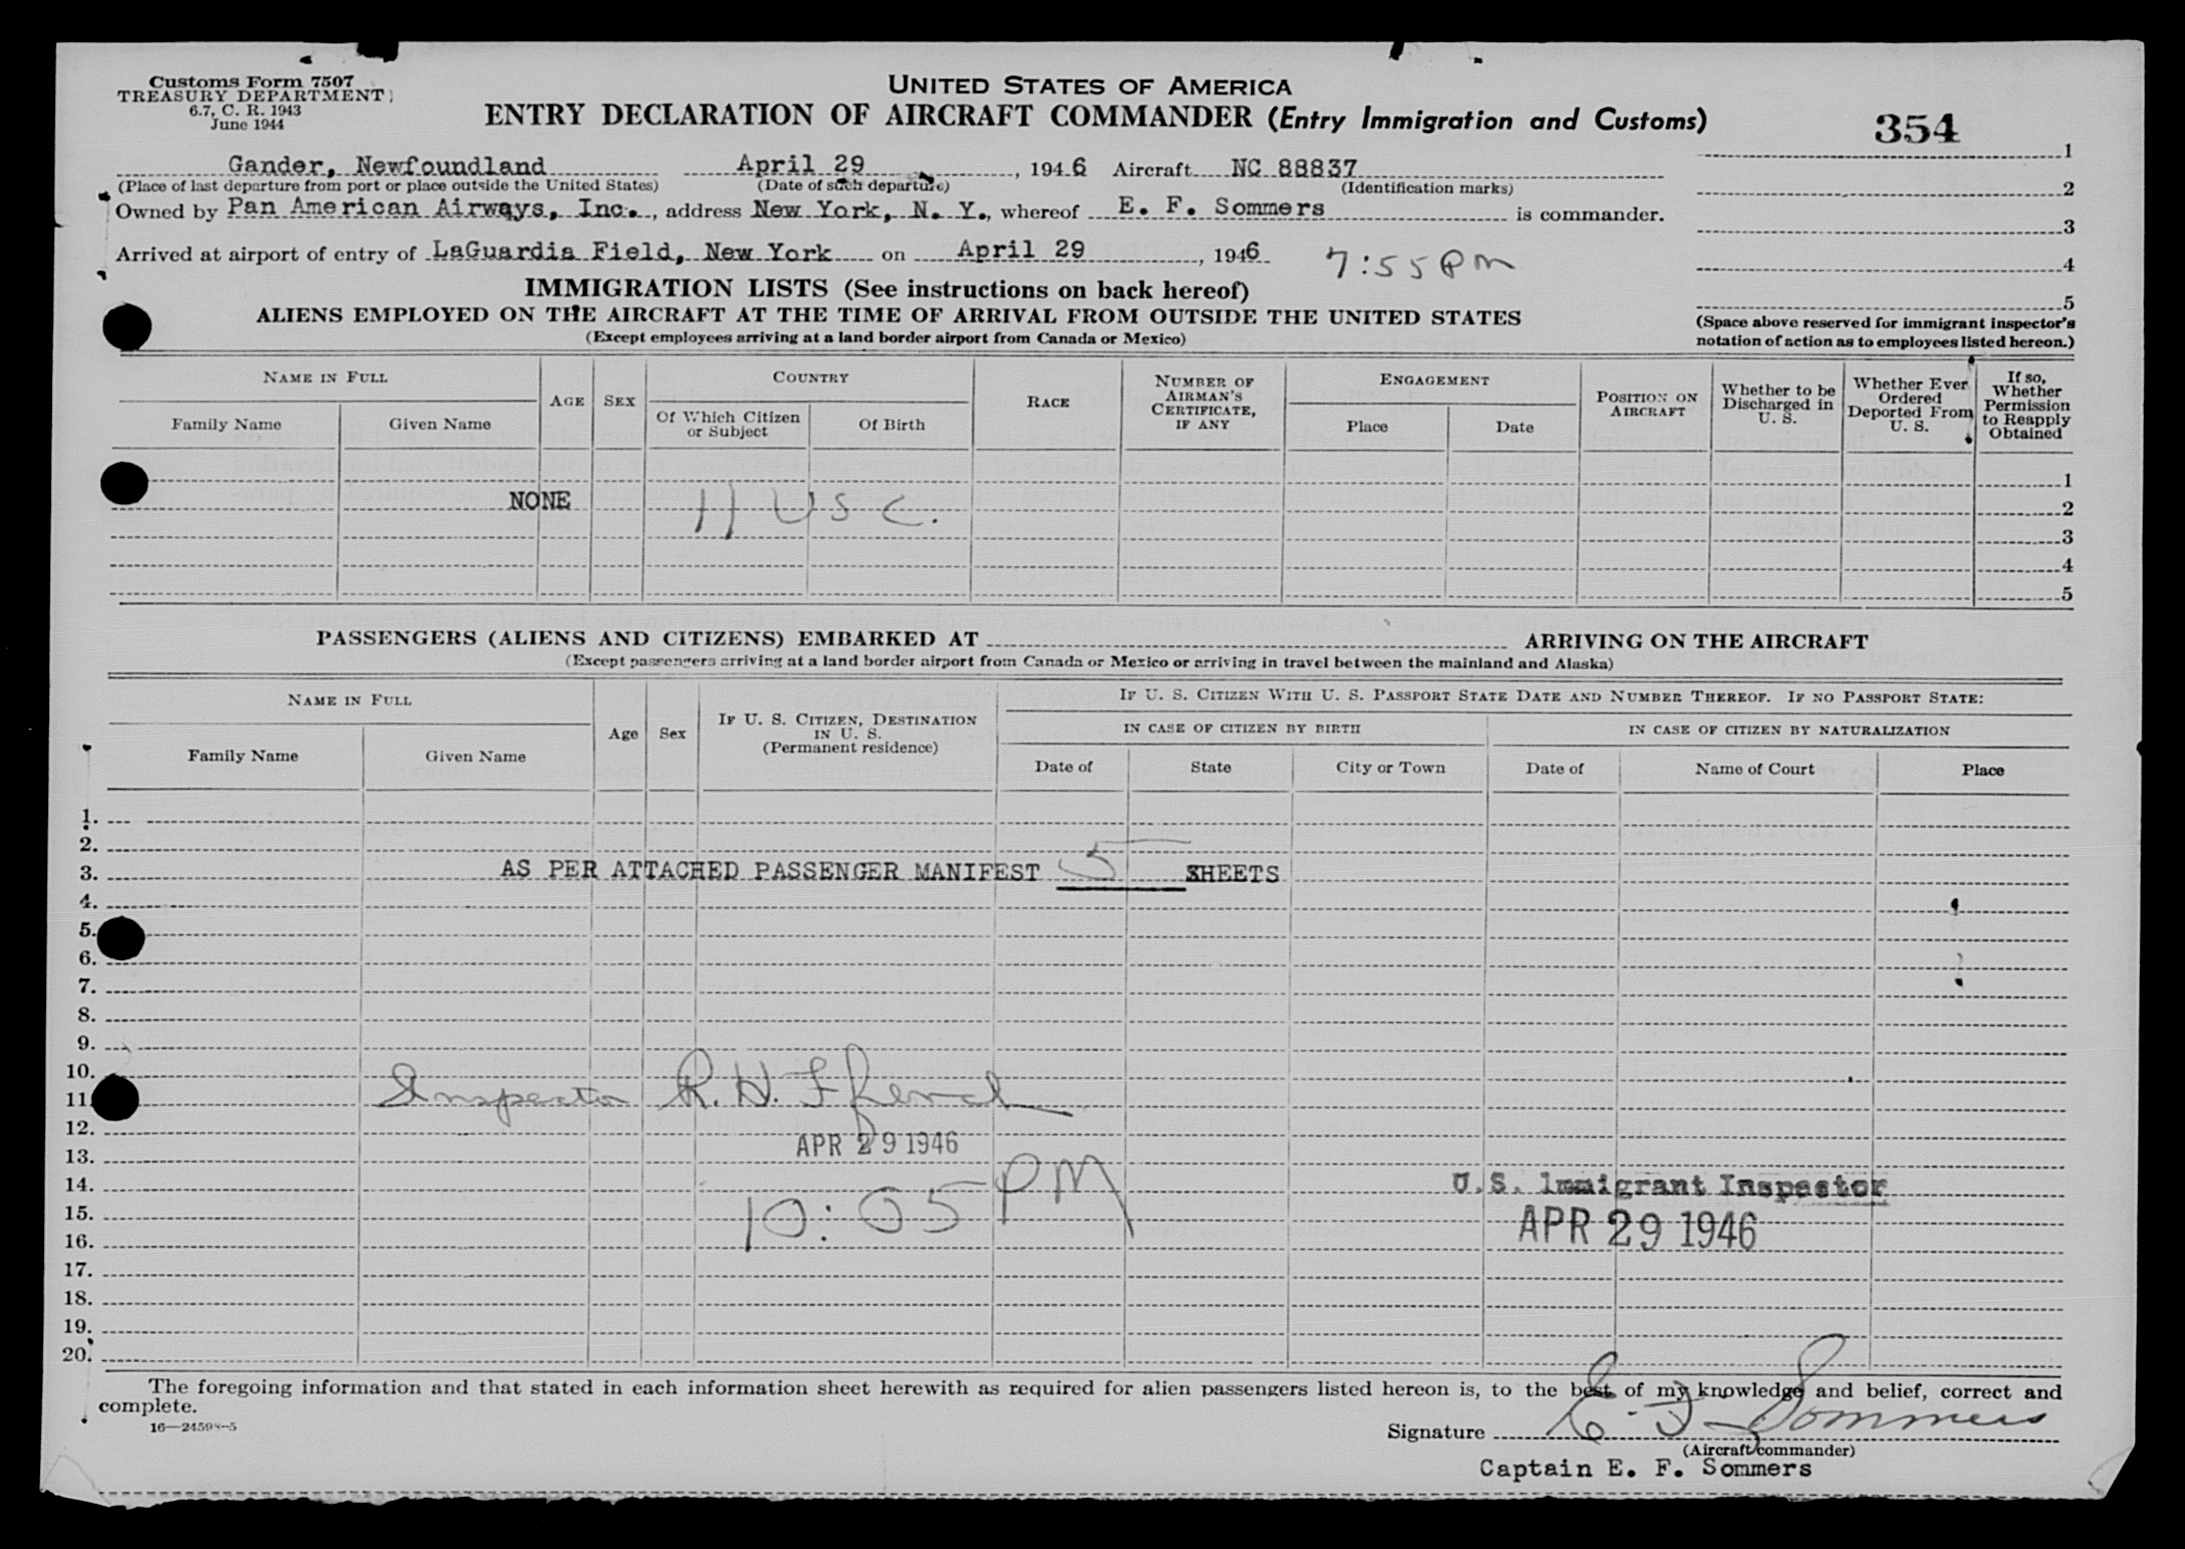 Customs Form 7507
TREASURY DEPARTMENT
6.7, C. R. 1943
June 1944
UNITED STATES OF AMERICA
ENTRY DECLARATION OF AIRCRAFT COMMANDER (Entry Immigration and Customs)
354
Gander, Newfoundland April 29, 1946 Aircraft NC 88837
(Place of last departure from port or place outside the United States) (Date of such departure) (Identification marks)
Owned by Pan American Airways, Inc., address New York, N. Y., whereof E. F. Sommers is commander.
Arrived at airport of entry of LaGuardia Field, New York on April 29, 1946 7:55 PM
1
2
3
4
5
(Space above reserved for immigrant inspector's
notation of action as to employees listed hereon.)
IMMIGRATION LISTS (See instructions on back hereof)
ALIENS EMPLOYED ON THE AIRCRAFT AT THE TIME OF ARRIVAL FROM OUTSIDE THE UNITED STATES
(Except employees arriving at a land border airport from Canada or Mexico)
NAME IN FULL
Family Name Given Name
AGE SEX
COUNTRY
Of Which Citizen
or Subject
Of Birth
RACE
NUMBER OF
AIRMAN'S
CERTIFICATE,
IF ANY
ENGAGEMENT
Place Date
POSITION ON
AIRCRAFT
Whether to be
Discharged in
U. S.
Whether Ever
Ordered
Deported From
U. S.
If so,
Whether
Permission
to Reapply
Obtained
1
NONE 11 USC. 2
3
4
5
PASSENGERS (ALIENS AND CITIZENS) EMBARKED AT ARRIVING ON THE AIRCRAFT
(Except passengers arriving at a land border airport from Canada or Mexico or arriving in travel between the mainland and Alaska)
NAME IN FULL
Family Name Given Name
Age Sex
IF U. S. CITIZEN, DESTINATION
IN U. S.
(Permanent residence)
IF U. S. CITIZEN WITH U. S. PASSPORT STATE DATE AND NUMBER THEREOF. IF NO PASSPORT STATE:
IN CASE OF CITIZEN BY BIRTH IN CASE OF CITIZEN BY NATURALIZATION
Date of State City or Town Date of Name of Court Place
1.
2.
3. AS PER ATTACHED PASSENGER MANIFEST 5 SHEETS
4.
5.
6.
7.
8.
9.
10.
11. Inspector R. H.
12.
13. APR 29 1946
14. U.S. Immigrant Inspector
15. 10:05 PM APR 29 1946
16.
17.
18.
19.
20.
The foregoing information and that stated in each information sheet herewith as required for alien passengers listed hereon is, to the best of my knowledge and belief, correct and
complete.
16—24598-5
Signature E. F. Sommers
(Aircraft commander)
Captain E. F. Sommers